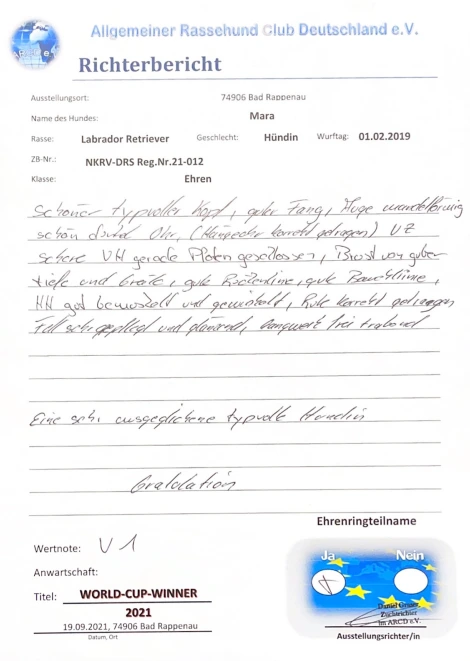 Allgemeiner Rassehund Club Deutschland e.V.
Richterbericht
Ausstellungsort: 74906 Bad Rappenau
Name des Hundes: Mara
Rasse: Labrador Retriever Geschlecht: Hündin Wurftag: 01.02.2019
ZB-Nr.: NKRV-DRS Reg.Nr.21-012
Klasse: Ehren
schöner typvoller Kopf, guter Fang, Auge mandelförmig
schön Ohr, (Hängeohr korrekt getragen) VZ
schere VH gerade Pfoten geschlossen, Brust von guter
tiefe und breite, gute Rückenlinie, gute Bauchlinie,
HH gut bemuskelt und gewinkelt, Rute korrekt getragen
Fell sehr gepflegt und glänzend, Gangwerk frei trabend
Eine sehr ausgeglichene typvolle Hündin
Gratulation
Ehrenringteilname
Wertnote: V 1
Ja Nein
Anwartschaft:
Titel: WORLD-CUP-WINNER
2021
19.09.2021, 74906 Bad Rappenau
Datum, Ort
Daniel
Zuchtrichter
im ARCD e.V.
Ausstellungsrichter/in